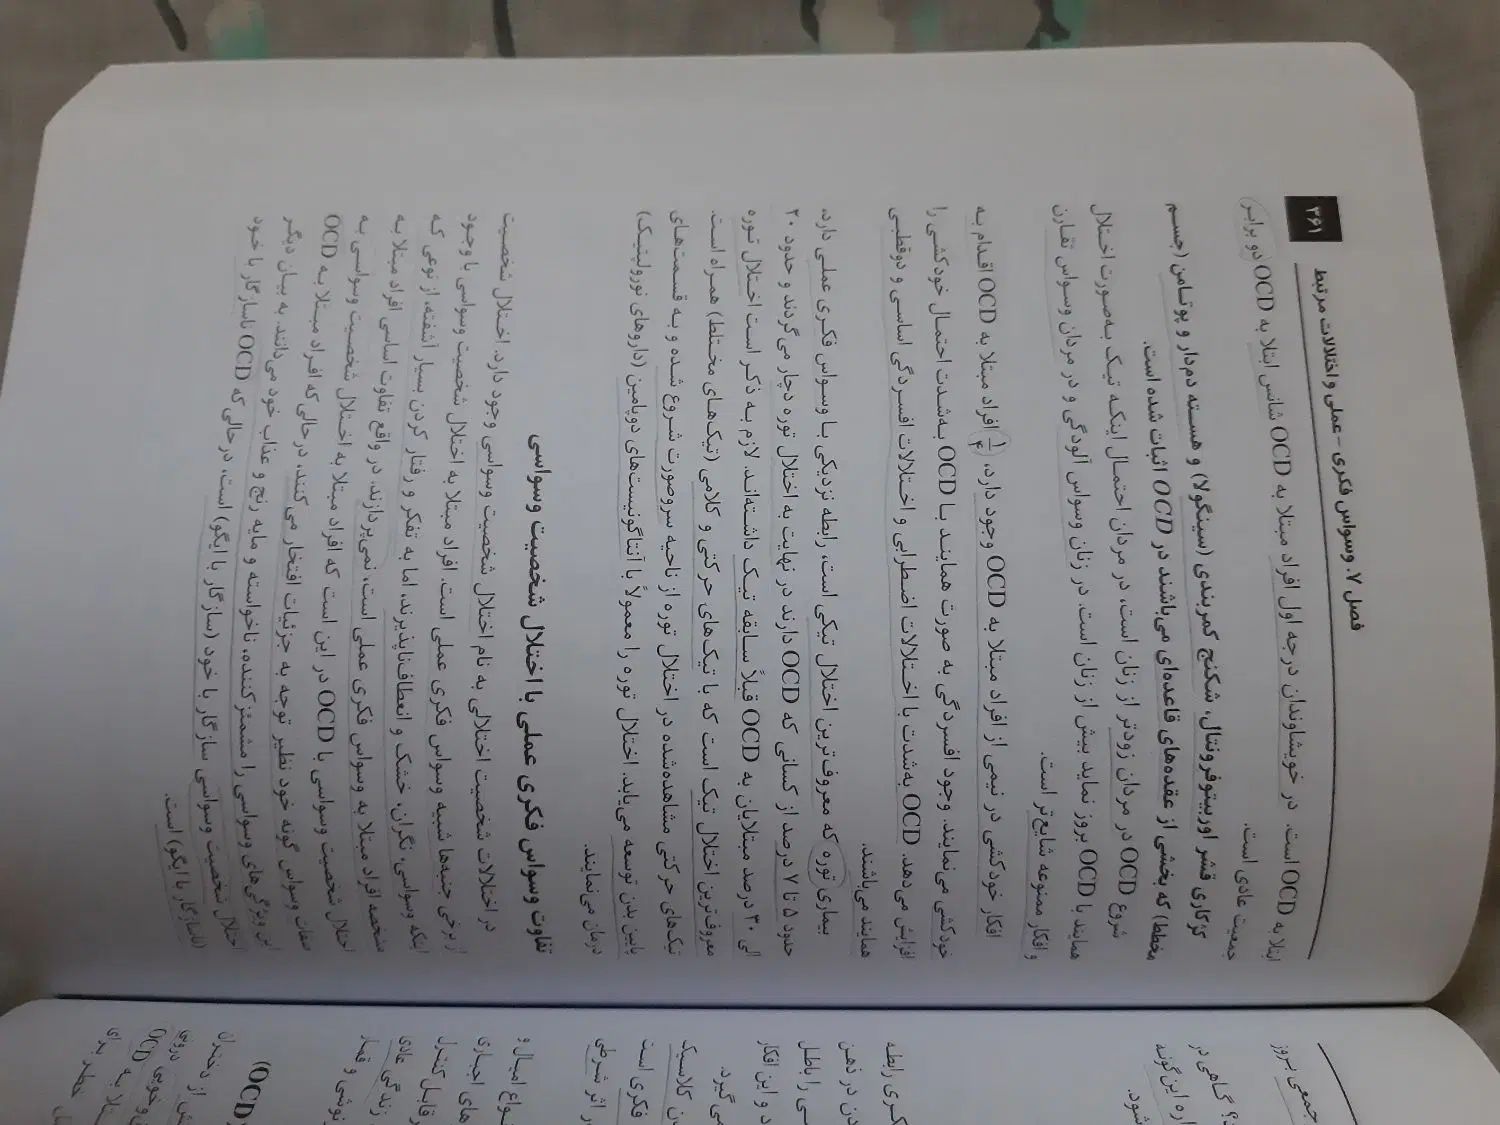 فصل ۷. وسواس فکری - عملی و اختلالات مرتبط
۳۶۱
ابتلا به OCD است. در خویشاوندان درجه اول افراد مبتلا به OCD شانس ابتلا به OCD دو برابر
جمعیت عادی است.
کژکاری قشر اوربیتوفرونتال، شکنج کمربندی (سینگولا) و هسته دم‌دار و پوتامن (جسم
مخطط) که بخشی از عقده‌های قاعده‌ای می‌باشند در OCD اثبات شده است.
شروع OCD در مردان زودتر از زنان است، در مردان احتمال اینکه تیک به‌صورت اختلال
همایند با OCD بروز نماید بیش از زنان است. در زنان وسواس آلودگی و در مردان وسواس تقارن
و افکار ممنوعه شایع‌تر است.
افکار خودکشی در نیمی از افراد مبتلا به OCD وجود دارد، ۱/۴ افراد مبتلا به OCD اقدام به
خودکشی می‌نمایند. وجود افسردگی به صورت همایند با OCD به‌شدت احتمال خودکشی را
افزایش می‌دهد. OCD به‌شدت با اختلالات اضطرابی و اختلالات افسردگی اساسی و دوقطبی
همایند می‌باشند.
بیماری توره که معروف‌ترین اختلال تیکی است، رابطه نزدیکی با وسواس فکری عملی دارد،
حدود ۵ تا ۷ درصد از کسانی که OCD دارند در نهایت به اختلال توره دچار می‌گردند و حدود ۲۰
الی ۳۰ درصد مبتلایان به OCD قبلاً سابقه تیک داشته‌اند. لازم به ذکر است اختلال توره
معروف‌ترین اختلال تیک است که با تیک‌های حرکتی و کلامی (تیک‌های مختلط) همراه است.
تیک‌های حرکتی مشاهده‌شده در اختلال توره از ناحیه سروصورت شروع شده و به قسمت‌های
پایین بدن توسعه می‌یابد. اختلال توره را معمولاً با آنتاگونیست‌های دوپامین (داروهای نورولپتیک)
درمان می‌نمایند.
تفاوت وسواس فکری عملی با اختلال شخصیت وسواسی
در اختلالات شخصیت اختلالی به نام اختلال شخصیت وسواسی وجود دارد. اختلال شخصیت
از برخی جنبه‌ها شبیه وسواس فکری عملی است. افراد مبتلا به اختلال شخصیت وسواسی با وجود
اینکه وسواسی، نگران، خشک و انعطاف‌ناپذیرند، اما به تفکر و رفتار کردن بسیار آشفته، از نوعی که
مشخصه افراد مبتلا به وسواس فکری عملی است، نمی‌پردازند. در واقع تفاوت اساسی افراد مبتلا به
اختلال شخصیت وسواسی با OCD در این است که افراد مبتلا به اختلال شخصیت وسواسی به
صفات وسواس گونه خود نظیر توجه به جزئیات افتخار می‌کنند، درحالی‌که افراد مبتلا به OCD
این ویژگی‌های وسواسی را مشمئزکننده، ناخواسته و مایه رنج و عذاب خود می‌دانند. به بیان دیگر
اختلال شخصیت وسواسی سازگار با خود (سازگار با ایگو) است، درحالی‌که OCD ناسازگار با خود
(ناسازگار با ایگو) است.
جمعی بروز
؟ گاهی در
اره این‌گونه
شود.
کری رابطه
دن در ذهن
سی را باطل
د و این افکار
می گیرد.
ن کلاسیک
فکری است
ر اثر شرطی
نواع امیال و
های اجباری
قابل کنترل
زندگی عادی
نوشی و قمار
OCD)
ش از دختران
و خوبی درونی
تلا به OCD
خطر برای